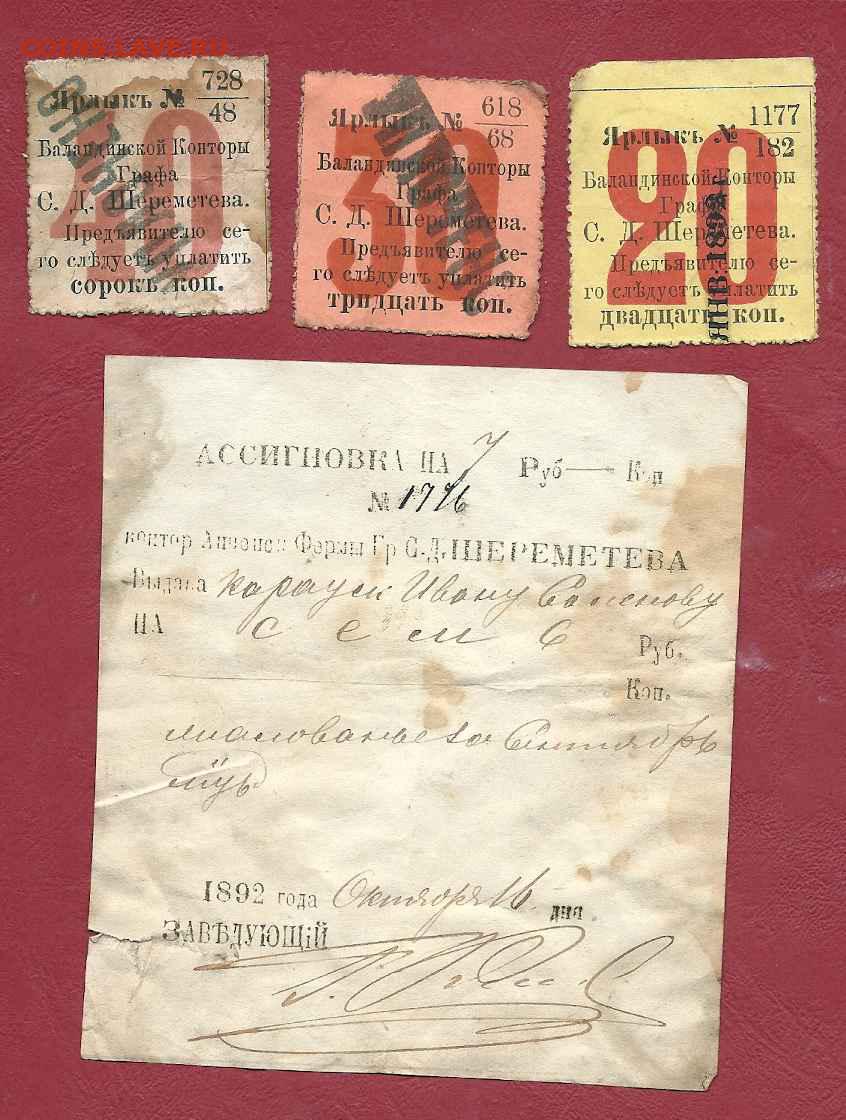 COINS.LAVE.RU
Ярлыкъ № 728/48
Баландинской Конторы
Графа
С. Д. Шереметева.
Предъявителю се-
го слѣдуетъ уплатить
сорокъ коп.
40
Ярлыкъ № 618/68
Баландинской Конторы
Графа
С. Д. Шереметева.
Предъявителю се-
го слѣдуетъ уплатить
тридцать коп.
30
Ярлыкъ № 1177/182
Баландинской Конторы
Графа
С. Д. Шереметева.
Предъявителю се-
го слѣдуетъ уплатить
двадцать коп.
20
ЯНВ. 1892 г.
АССИГНОВКА НА 7 Руб — Коп
№ 1776
контор Фермы Гр С. Д. ШЕРЕМЕТЕВА
Выдана Ивану
НА семь Руб.
Коп.
жалованье за Сентябрь
1892 года Октября 16 дня
ЗАВѢДУЮЩІЙ